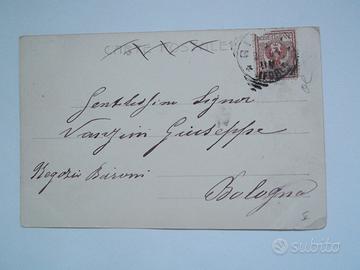 CARTE POSTALE
Gentilissimo Signor
Vanzini Giuseppe
Negozio Bironi
Bologna
subito